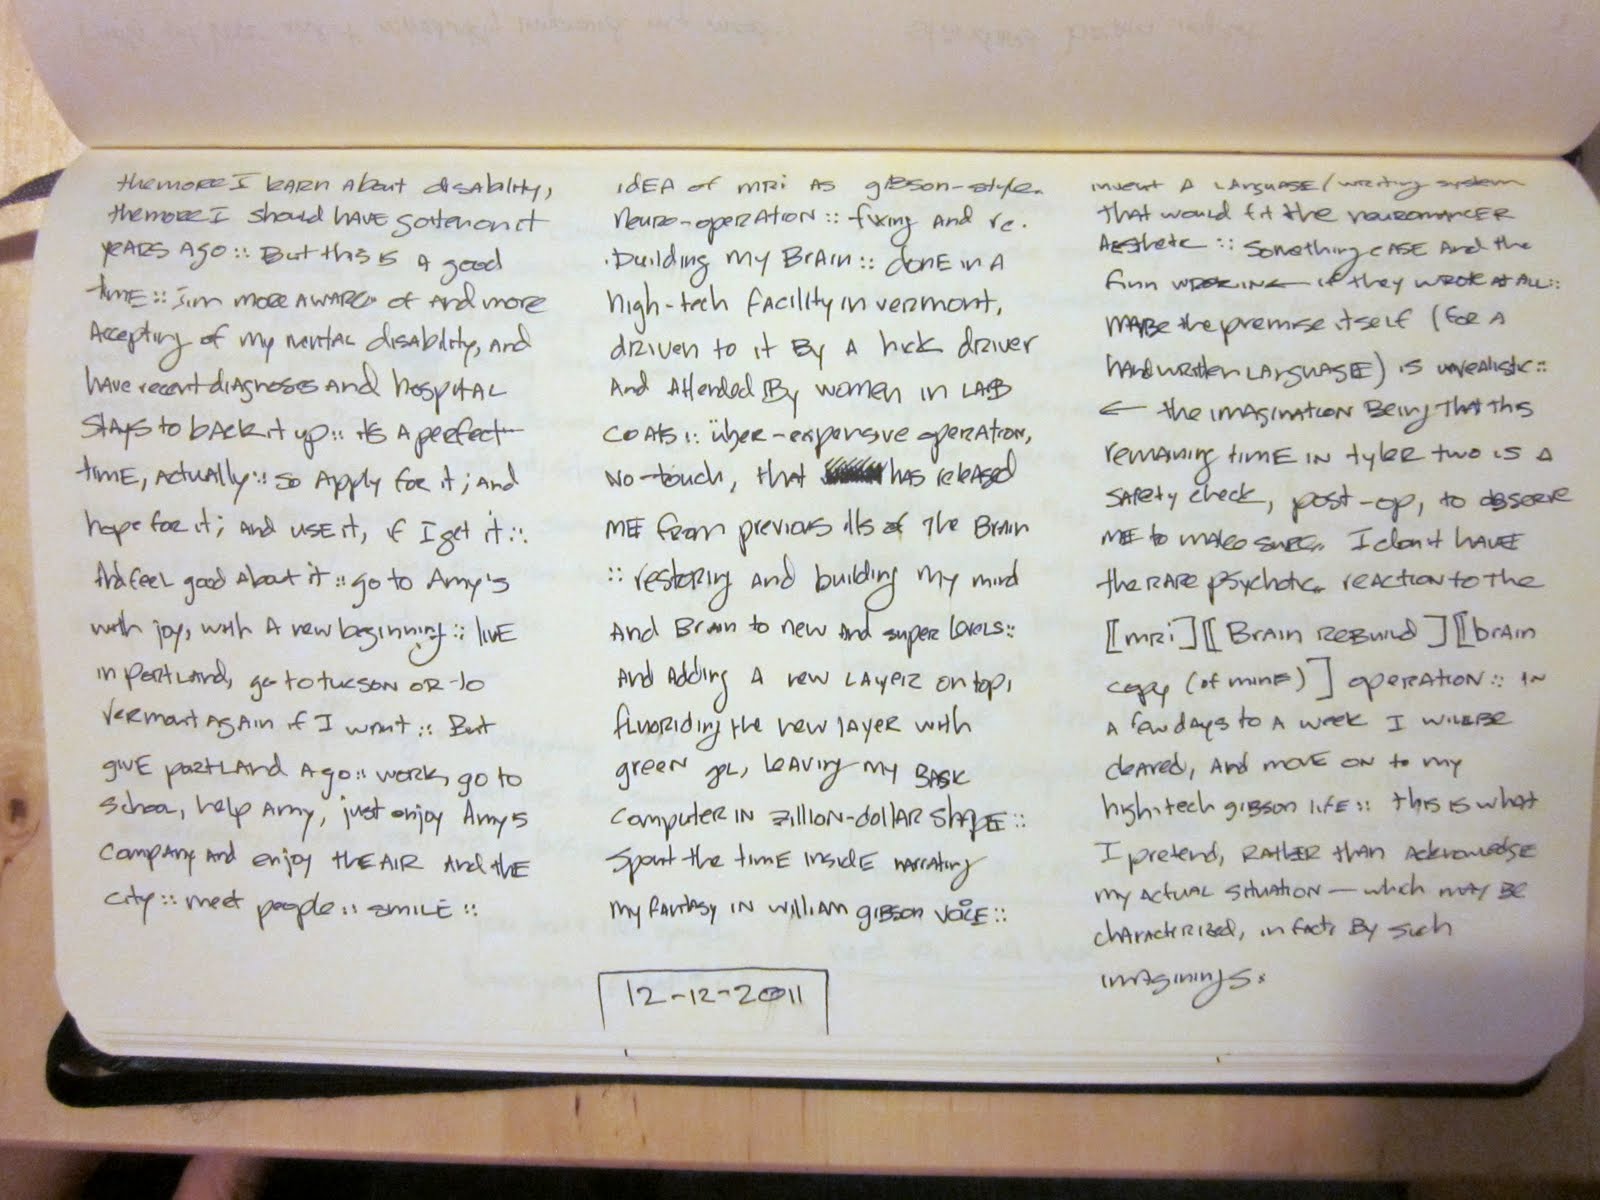 the more I learn about disability,
the more I should have gotten on it
years ago :: But this is a good
time :: I'm more aware of and more
Accepting of my mental disability, and
have recent diagnoses and hospital
stays to back it up :: it's a perfect
time, actually :: so apply for it ; and
hope for it ; and use it, if I get it ::
And feel good about it :: go to Amy's
with joy, with a new beginning :: live
in portland, go to tucson or to
vermont again if I want :: But
give portland a go :: work, go to
school, help Amy, just enjoy Amy's
company and enjoy the air and the
city :: meet people :: smile ::
idea of mri as gibson-style
neuro-operation :: fixing and re-
building my brain :: done in a
high-tech facility in vermont,
driven to it by a hick driver
and attended by women in lab
coats :: über-expensive operation,
no-touch, that has released
me from previous ills of the brain
:: restoring and building my mind
and brain to new and super levels ::
and adding a new layer on top,
fluoriding the new layer with
green gel, leaving my basic
computer in zillion-dollar shape ::
spent the time inside narrating
my fantasy in william gibson voice ::
12-12-2011
invent a language / writing system
that would fit the neuromancer
Aesthetic :: something case and the
finn wrote in ← if they wrote at all ::
maybe the premise itself (for a
handwritten language) is unrealistic ::
← the imagination being that this
remaining time in tyler two is a
safety check, post-op, to observe
me to make sure I don't have
the rare psychotic reaction to the
[mri] [Brain rebuild] [brain
copy (of mine)] operation :: in
a few days to a week I will be
cleared, and move on to my
high-tech gibson life :: this is what
I pretend, rather than acknowledge
my actual situation — which may be
characterized, in fact, by such
imaginings.